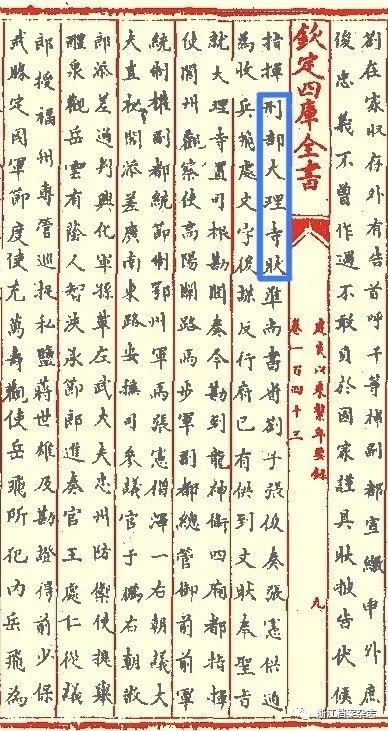 劄在家收存有告首呼千等補副都宣繳申外庶
後忠義不曽作過不敢負於國家謹具狀披告伏候
欽定四庫全書
建炎以來繫年要錄
卷一百四十三
九
指揮刑部大理寺狀准尚書省劄子張俊奏張憲供通
為收岳飛處文字後謀反行府已有供到文狀奉聖旨
就大理寺置司根勘聞奏今勘到龍神衛四廂都指揮
使閬州觀察使高陽關路馬步軍副都總管御前前軍
統制權副都統節制鄂州軍馬張憲僧澤一右朝議大
夫直祕閣添差廣南東路安撫司參議官于鵬右朝散
郎添差通判興化軍孫革左武大夫忠州防禦使提舉
醴泉觀岳雲有蔭人智浹承節郎進奏官王處仁從義
郎授福州專管巡捉私鹽蔣世雄及勘證得前少保
武勝定國軍節度使充萬壽觀使岳飛所犯内岳飛為
浙江档案杂志